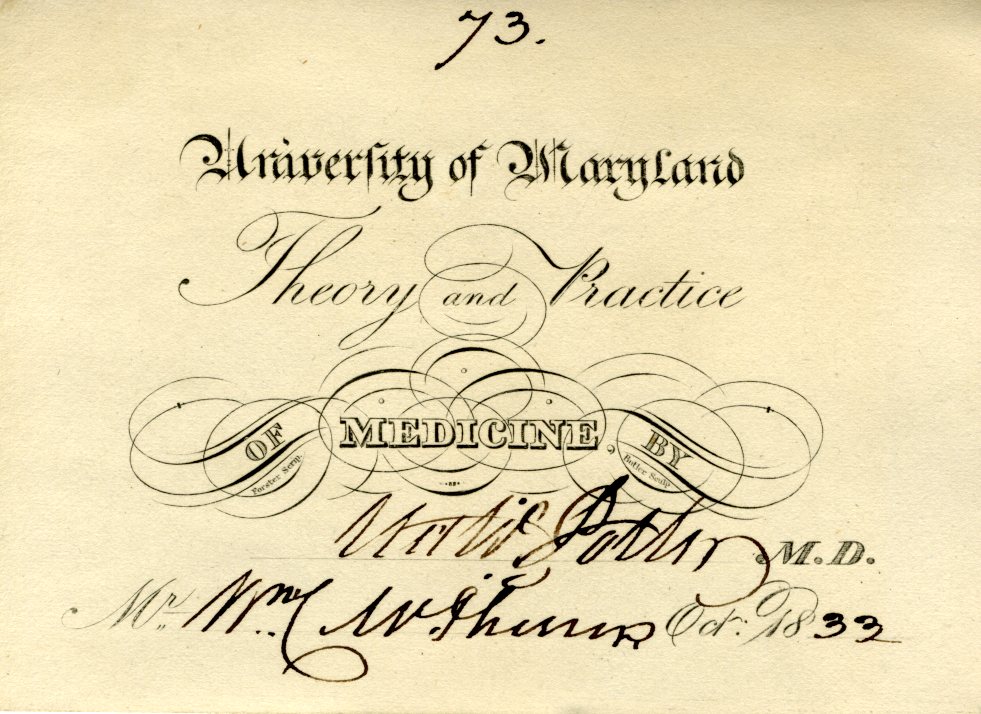 73.
University of Maryland
Theory and Practice
OF MEDICINE BY
Forster Scrip. Butler Sculp.
Nath. Potter M.D.
Mr. Wm. Oct. 1833